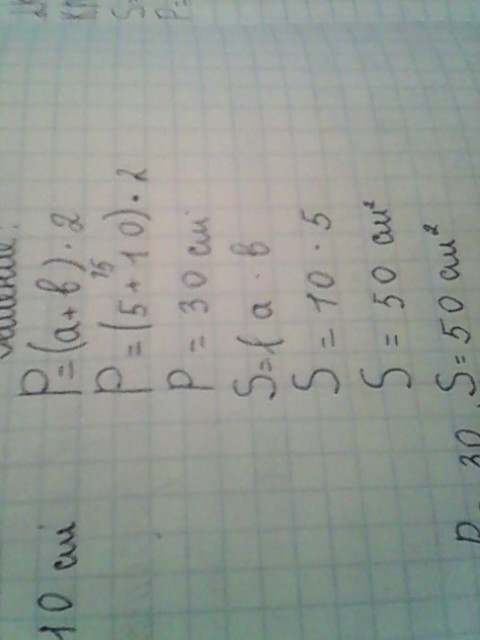 10 см
P=(a+b)·2
P=(5+10)·2
15
P=30 см
S=a·b
S=10·5
S=50 см²
30. S=50 см²